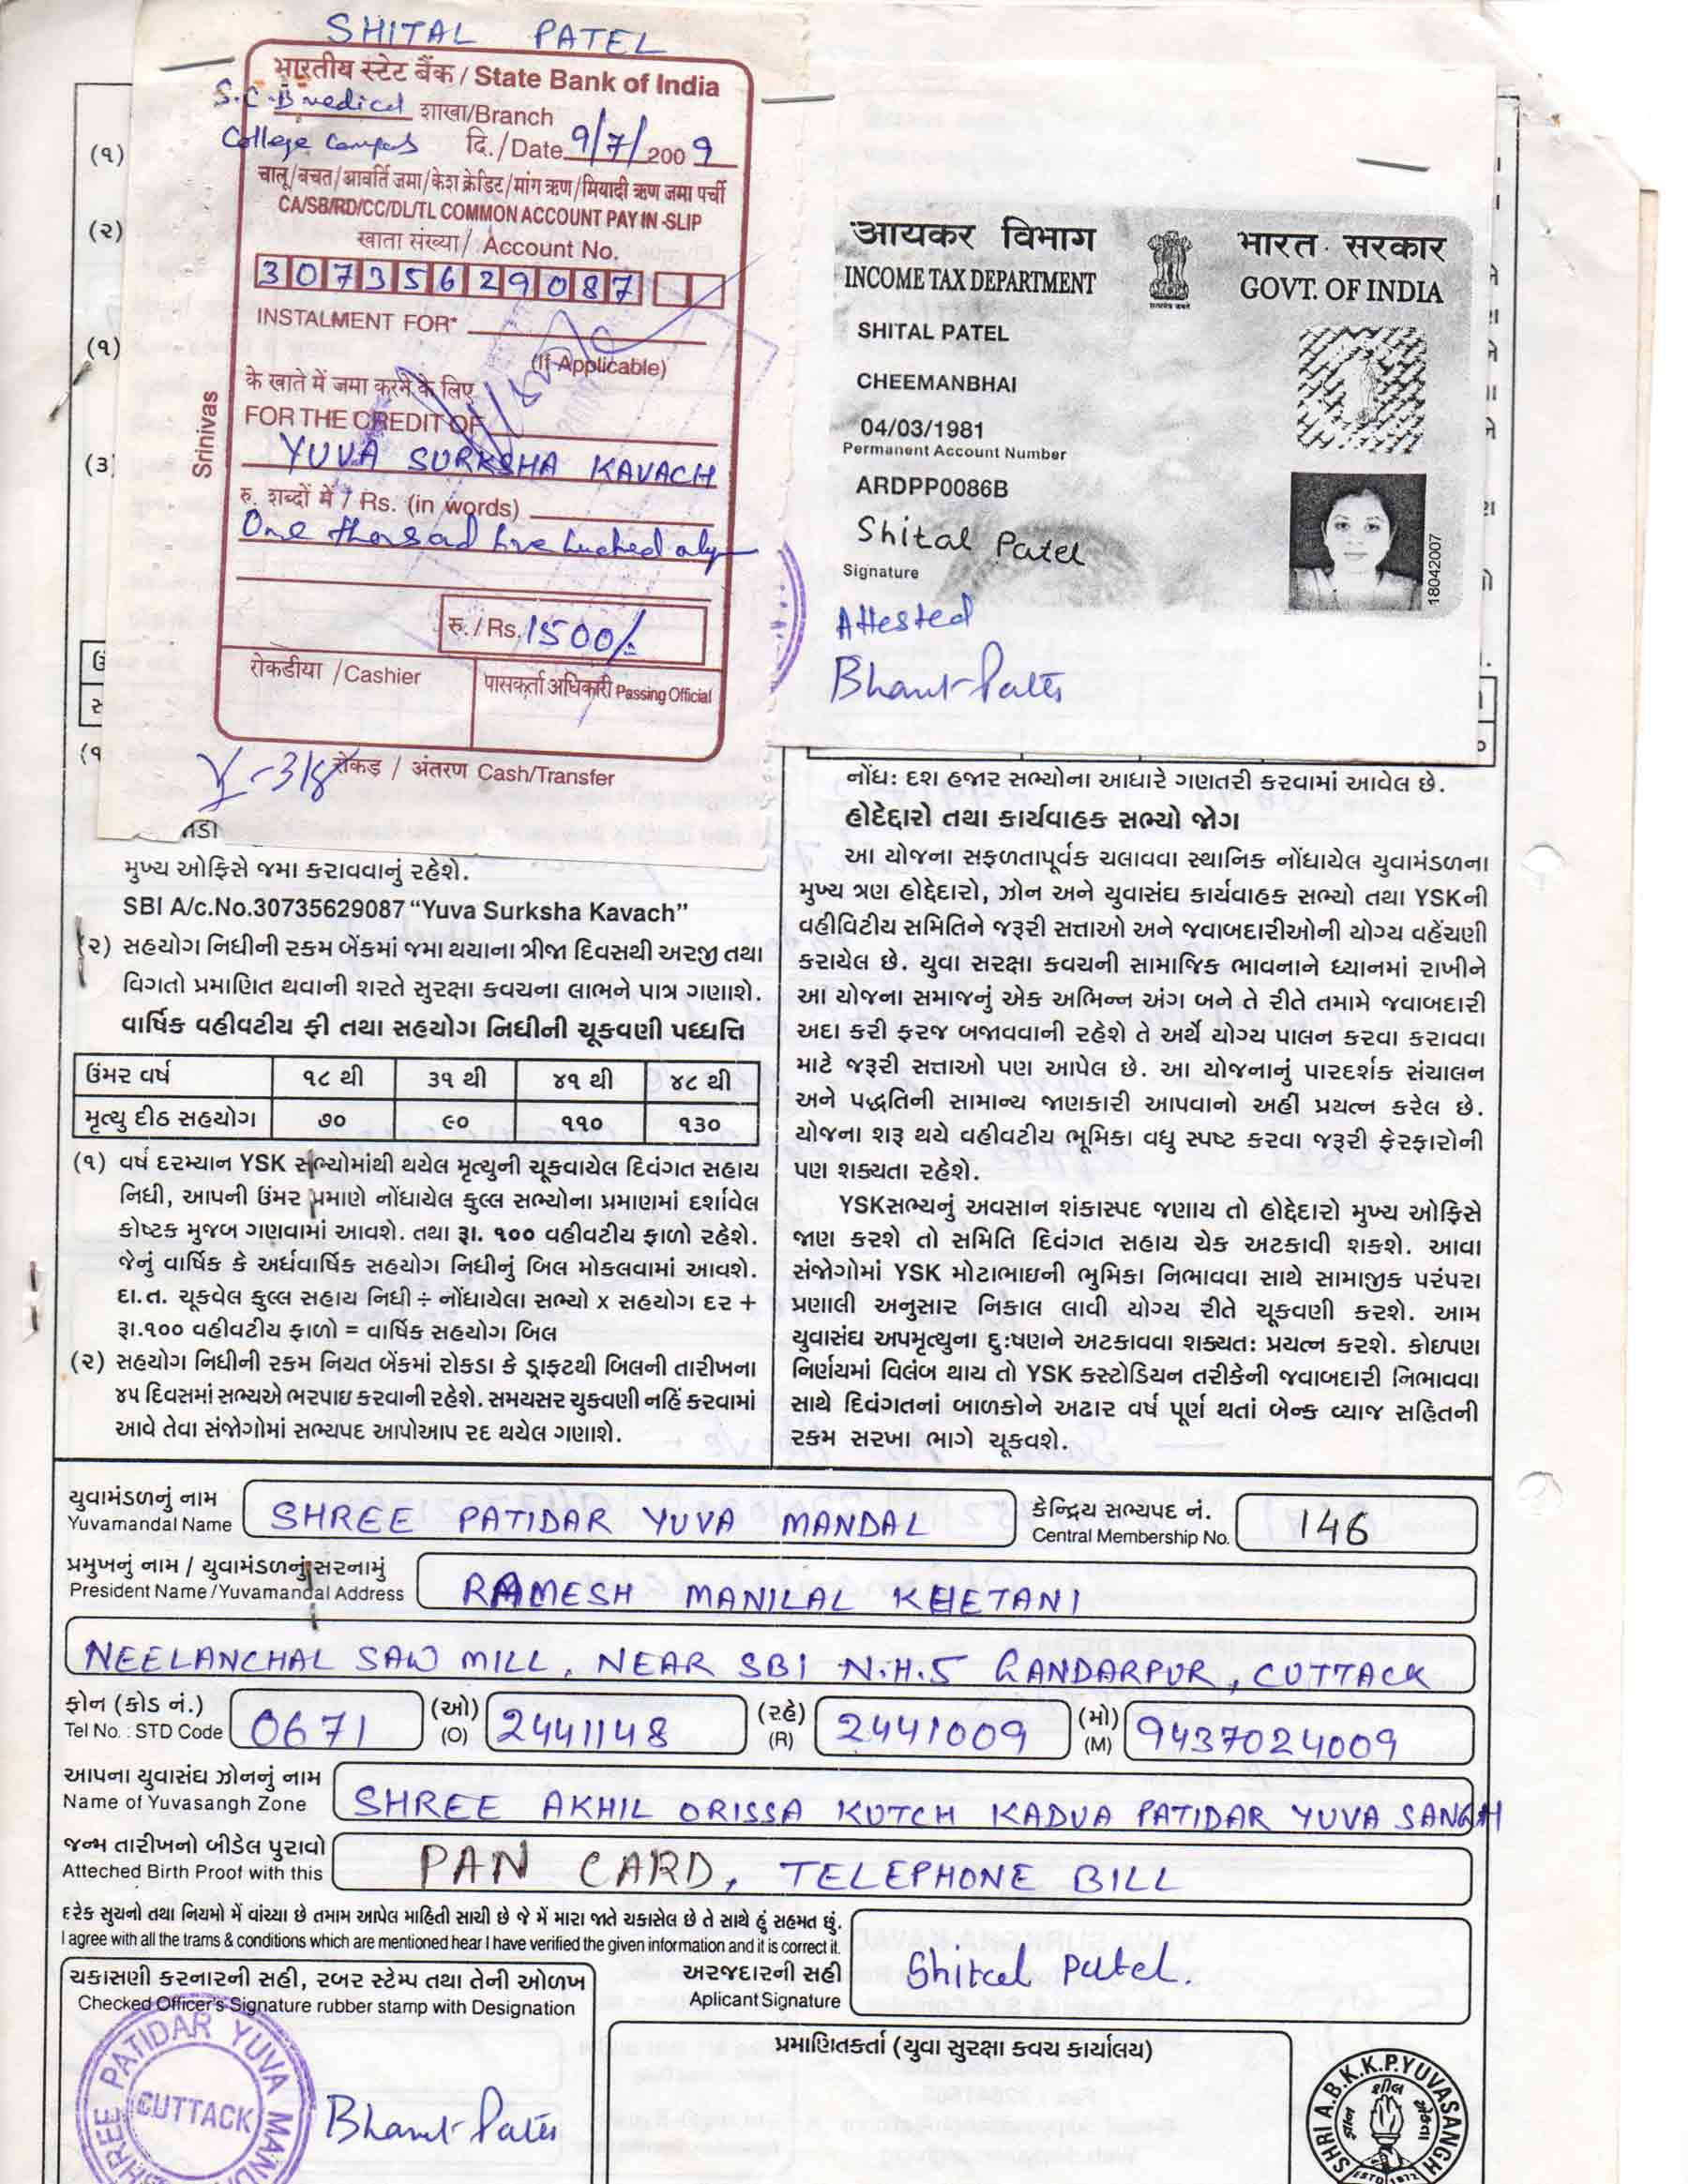 SHITAL PATEL
भारतीय स्टेट बैंक / State Bank of India
S.C.B medical शाखा/Branch
College Campus दि./Date 9/7/2009
चालू/बचत/आवर्ति जमा/केश क्रेडिट/मांग ऋण/मियादी ऋण जमा पर्ची
CA/SB/RD/CC/DL/TL COMMON ACCOUNT PAY IN -SLIP
खाता संख्या/ Account No.
30735629087
INSTALMENT FOR*
(If Applicable)
के खाते में जमा करने के लिए
FOR THE CREDIT OF
YUVA SURKSHA KAVACH
रु. शब्दों में / Rs. (in words)
One
रु./Rs. 1500/-
रोकडीया /Cashier
पासकर्ता अधिकारी Passing Official
रोकड़ / अंतरण Cash/Transfer
Srinivas
आयकर विभाग भारत सरकार
INCOME TAX DEPARTMENT GOVT. OF INDIA
SHITAL PATEL
CHEEMANBHAI
04/03/1981
Permanent Account Number
ARDPP0086B
Shital Patel
Signature
18042007
Attested
(૧)
(૨)
(૧)
(૩)
મુખ્ય ઓફિસે જમા કરાવવાનું રહેશે.
SBI A/c.No.30735629087 “Yuva Surksha Kavach”
(૨) સહયોગ નિધીની રકમ બેંકમાં જમા થયાના ત્રીજા દિવસથી અરજી તથા
વિગતો પ્રમાણિત થવાની શરતે સુરક્ષા કવચના લાભને પાત્ર ગણાશે.
વાર્ષિક વહીવટીય ફી તથા સહયોગ નિધીની ચૂકવણી પધ્ધતિ
ઉંમર વર્ષ ૧૮ થી ૩૧ થી ૪૧ થી ૪૮ થી
મૃત્યુ દીઠ સહયોગ ૭૦ ૯૦ ૧૧૦ ૧૩૦
(૧) વર્ષ દરમ્યાન YSK સભ્યોમાંથી થયેલ મૃત્યુની ચૂકવાયેલ દિવંગત સહાય
નિધી, આપની ઉંમર પ્રમાણે નોંધાયેલ કુલ્લ સભ્યોના પ્રમાણમાં દર્શાવેલ
કોષ્ટક મુજબ ગણવામાં આવશે. તથા રૂા. ૧૦૦ વહીવટીય ફાળો રહેશે.
જેનું વાર્ષિક કે અર્ધવાર્ષિક સહયોગ નિધીનું બિલ મોકલવામાં આવશે.
દા.ત. ચૂકવેલ કુલ્લ સહાય નિધી ÷ નોંધાયેલા સભ્યો x સહયોગ દર +
રૂા.૧૦૦ વહીવટીય ફાળો = વાર્ષિક સહયોગ બિલ
(૨) સહયોગ નિધીની રકમ નિયત બેંકમાં રોકડા કે ડ્રાફટથી બિલની તારીખના
૪૫ દિવસમાં સભ્યએ ભરપાઇ કરવાની રહેશે. સમયસર ચુકવણી નહિં કરવામાં
આવે તેવા સંજોગોમાં સભ્યપદ આપોઆપ રદ થયેલ ગણાશે.
નોંધ: દશ હજાર સભ્યોના આધારે ગણતરી કરવામાં આવેલ છે.
હોદેદ્દારો તથા કાર્યવાહક સભ્યો જોગ
આ યોજના સફળતાપૂર્વક ચલાવવા સ્થાનિક નોંધાયેલ યુવામંડળના
મુખ્ય ત્રણ હોદ્દેદારો, ઝોન અને યુવાસંઘ કાર્યવાહક સભ્યો તથા YSKની
વહીવિટીય સમિતિને જરૂરી સત્તાઓ અને જવાબદારીઓની યોગ્ય વહેંચણી
કરાયેલ છે. યુવા સરક્ષા કવચની સામાજિક ભાવનાને ધ્યાનમાં રાખીને
આ યોજના સમાજનું એક અભિન્ન અંગ બને તે રીતે તમામે જવાબદારી
અદા કરી ફરજ બજાવવાની રહેશે તે અર્થે યોગ્ય પાલન કરવા કરાવવા
માટે જરૂરી સત્તાઓ પણ આપેલ છે. આ યોજનાનું પારદર્શક સંચાલન
અને પદ્ધતિની સામાન્ય જાણકારી આપવાનો અહીં પ્રયત્ન કરેલ છે.
યોજના શરૂ થયે વહીવટીય ભૂમિકા વધુ સ્પષ્ટ કરવા જરૂરી ફેરફારોની
પણ શક્યતા રહેશે.
YSKસભ્યનું અવસાન શંકાસ્પદ જણાય તો હોદ્દેદારો મુખ્ય ઓફિસે
જાણ કરશે તો સમિતિ દિવંગત સહાય ચેક અટકાવી શકશે. આવા
સંજોગોમાં YSK મોટાભાઇની ભુમિકા નિભાવવા સાથે સામાજીક પરંપરા
પ્રણાલી અનુસાર નિકાલ લાવી યોગ્ય રીતે ચૂકવણી કરશે. આમ
યુવાસંઘ અપમૃત્યુના દુઃષણને અટકાવવા શક્યતઃ પ્રયત્ન કરશે. કોઇપણ
નિર્ણયમાં વિલંબ થાય તો YSK કસ્ટોડિયન તરીકેની જવાબદારી નિભાવવા
સાથે દિવંગતનાં બાળકોને અઢાર વર્ષ પૂર્ણ થતાં બેન્ક વ્યાજ સહિતની
રકમ સરખા ભાગે ચૂકવશે.
યુવામંડળનું નામ
Yuvamandal Name SHREE PATIDAR YUVA MANDAL
કેન્દ્રિય સભ્યપદ નં.
Central Membership No. 146
પ્રમુખનું નામ / યુવામંડળનું સરનામું
President Name /Yuvamandal Address RAMESH MANILAL KHETANI
NEELANCHAL SAW MILL, NEAR SBI N.H.5 GANDARPUR, CUTTACK
ફોન (કોડ નં.) (ઓ) (રહે) (મો)
Tel No. : STD Code 0671 (O) 2441148 (R) 2441009 (M) 9437024009
આપના યુવાસંઘ ઝોનનું નામ
Name of Yuvasangh Zone SHREE AKHIL ORISSA KUTCH KADVA PATIDAR YUVA SANGH
જન્મ તારીખનો બીડેલ પુરાવો
Atteched Birth Proof with this PAN CARD, TELEPHONE BILL
દરેક સુચનો તથા નિયમો મેં વાંચ્યા છે તમામ આપેલ માહિતી સાચી છે જે મેં મારા જાતે ચકાસેલ છે તે સાથે હું સહમત છું.
I agree with all the trams & conditions which are mentioned hear I have verified the given information and it is correct it.
અરજદારની સહી
Aplicant Signature Shital Patel.
ચકાસણી કરનારની સહી, રબર સ્ટેમ્પ તથા તેની ઓળખ
Checked Officer's Signature rubber stamp with Designation
SHREE PATIDAR YUVA MAND
CUTTACK
પ્રમાણિતકર્તા (યુવા સુરક્ષા કવચ કાર્યાલય)
SHRI A.B.K.K.P.YUVASANGH